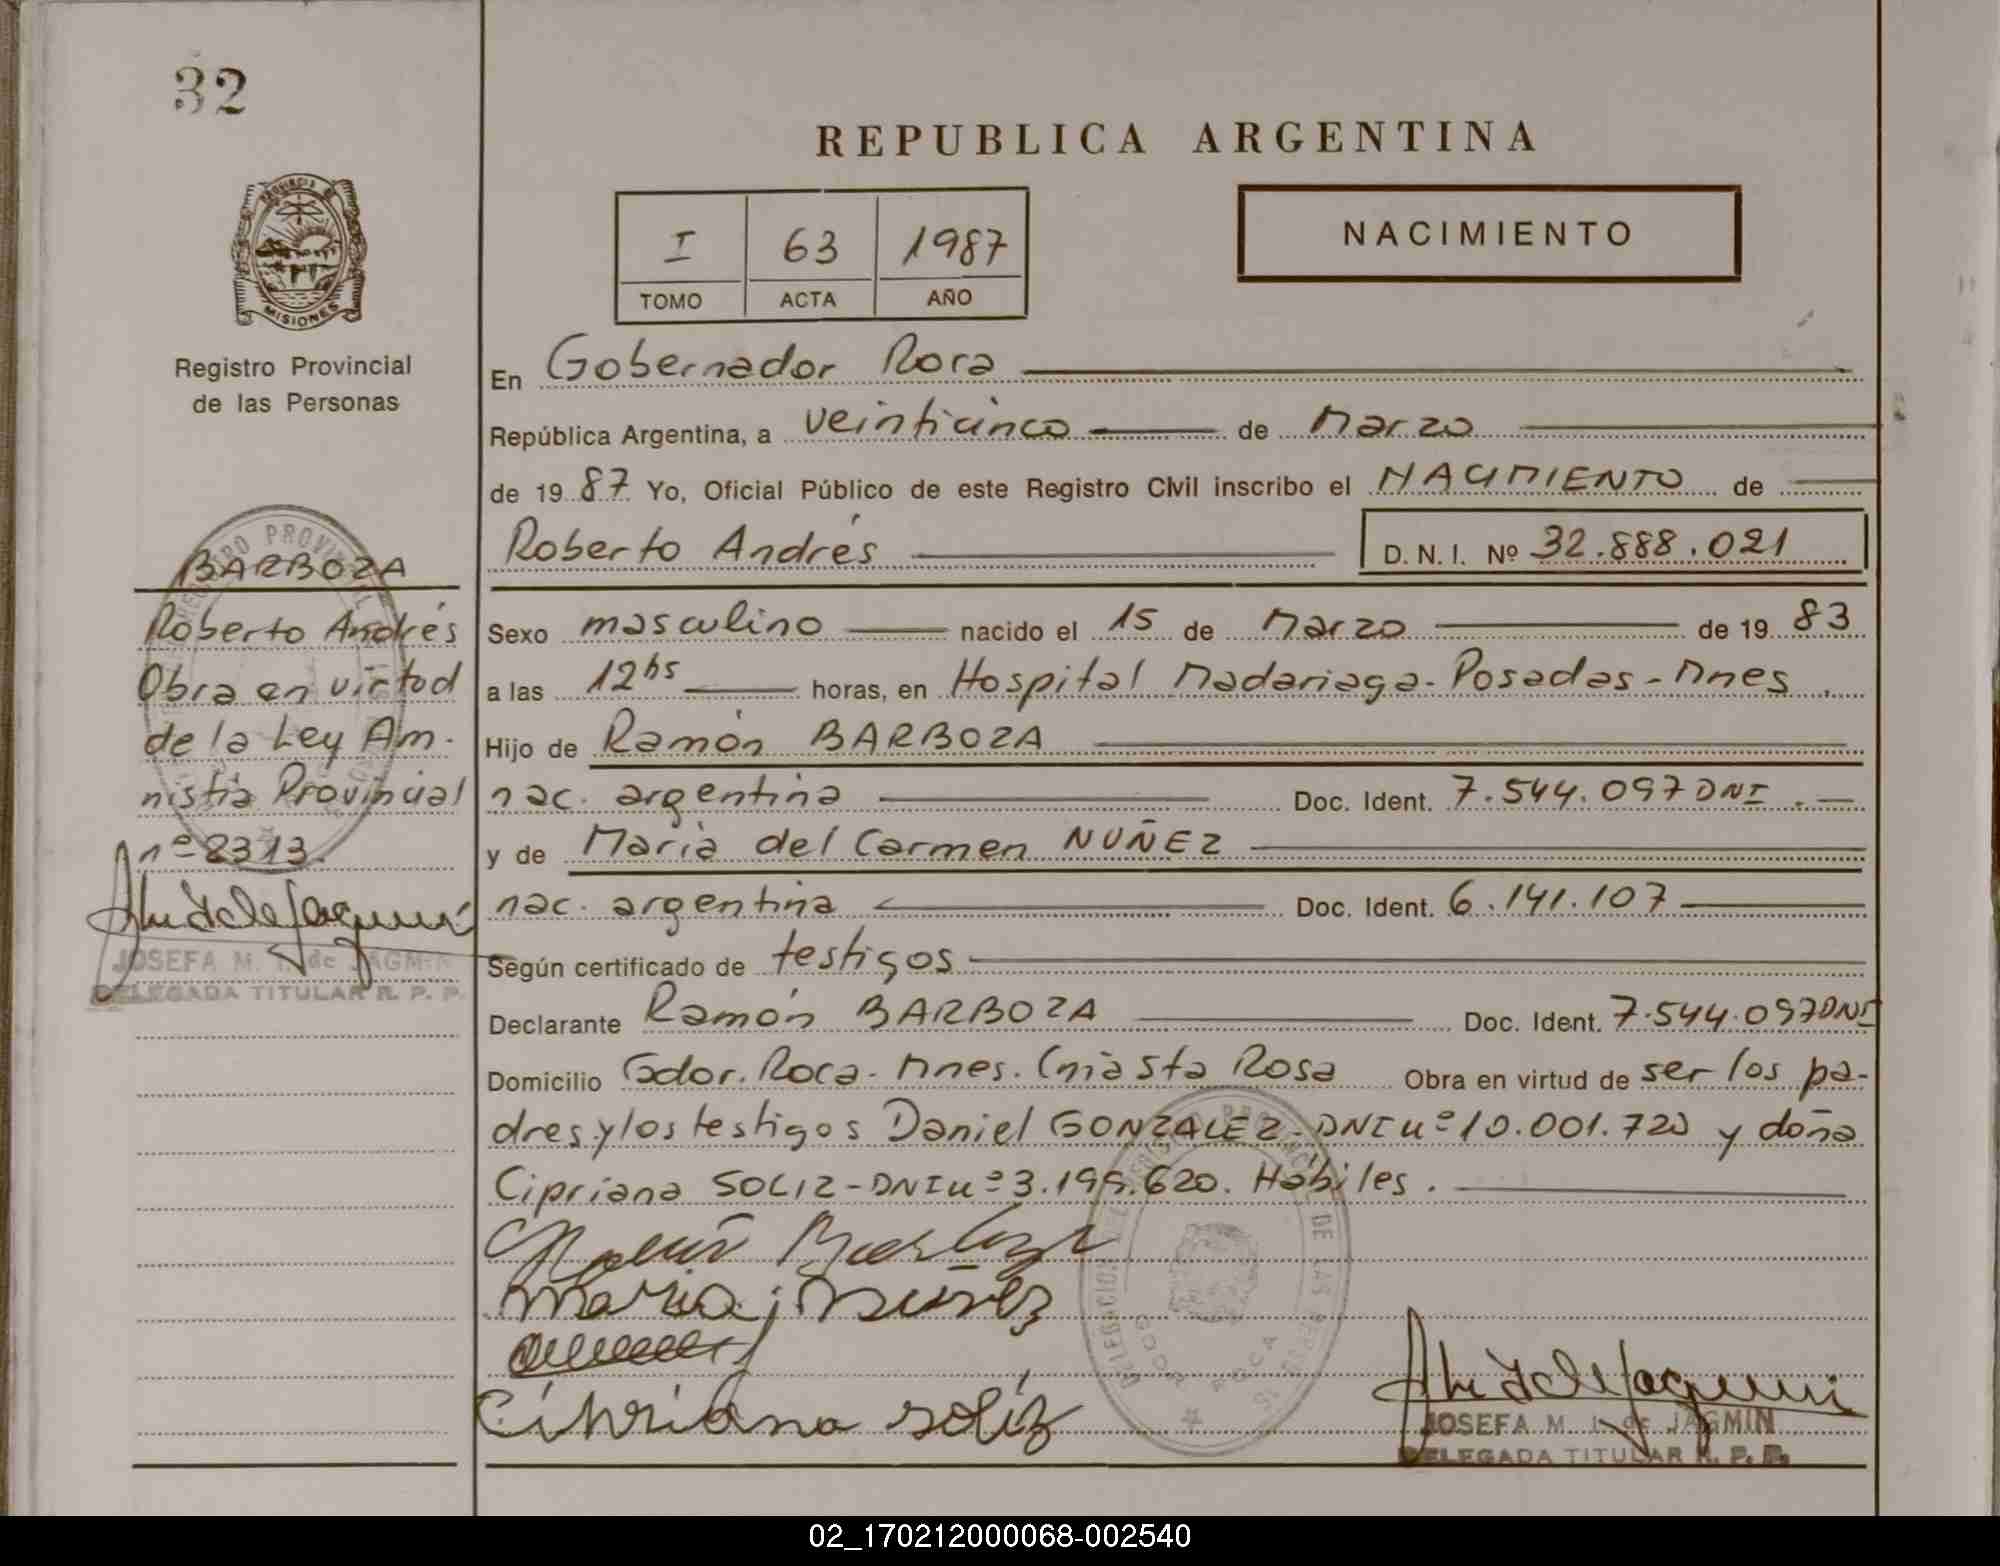 32
REPUBLICA ARGENTINA
NACIMIENTO
I 63 1987
TOMO ACTA AÑO
PROVINCIA DE
MISIONES
Registro Provincial
de las Personas
BARBOZA
Roberto Andrés
Obra en virtud
de la Ley Am-
nistia Provincial
nº 2313.
JOSEFA M. I. de JAGMIN
DELEGADA TITULAR R. P. P.
En Gobernador Roca
República Argentina, a veinticinco de Marzo
de 1987 Yo, Oficial Público de este Registro Civil inscribo el NACIMIENTO de
Roberto Andrés D. N. I. Nº 32.888.021
Sexo masculino nacido el 15 de Marzo de 1983
a las 12hs horas, en Hospital Madariaga - Posadas - Mnes
Hijo de Ramón BARBOZA
nac. argentina Doc. Ident. 7.544.097 DNI.
y de María del Carmen NUÑEZ
nac. argentina Doc. Ident. 6.141.107
Según certificado de testigos
Declarante Ramón BARBOZA Doc. Ident. 7.544.097 DNI
Domicilio Gdor. Roca - Mnes. Cnia Sta Rosa Obra en virtud de ser los pa-
dres y los testigos Daniel GONZALEZ - DNI nº 10.001.720 y doña
Cipriana SOLIZ - DNI nº 3.199.620. Hábiles.
Maria Nuñez
Cipriana Soliz
DELEGACION DEL REGISTRO PROVINCIAL DE LAS PERSONAS
GDOR ROCA
JOSEFA M. I. de JAGMIN
DELEGADA TITULAR R. P. P.
02_170212000068-002540